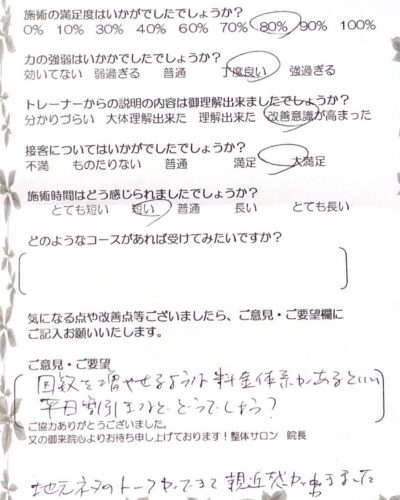 施術の満足度はいかがでしたでしょうか？
0% 10% 30% 40% 60% 70% 80% 90% 100%
力の強弱はいかかでしたでしょうか？
効いてない 弱過ぎる 普通 丁度良い 強過ぎる
トレーナーからの説明の内容は御理解出来ましたでしょうか？
分かりづらい 大体理解出来た 理解出来た 改善意識が高まった
接客についてはいかがでしたでしょうか？
不満 ものたりない 普通 満足 大満足
施術時間はどう感じられましたでしょうか？
とても短い 短い 普通 長い とても長い
どのようなコースがあれば受けてみたいですか？
気になる点や改善点等ございましたら、ご意見・ご要望欄に
ご記入お願いいたします。
ご意見・ご要望
回数を増やせるような料金体系があるといい
平日割引などどうでしょう？
ご協力ありがとうございました。
又の御来院心よりお待ち申し上げております！整体サロン 院長
地元ネタのトークができて親近感が出ました